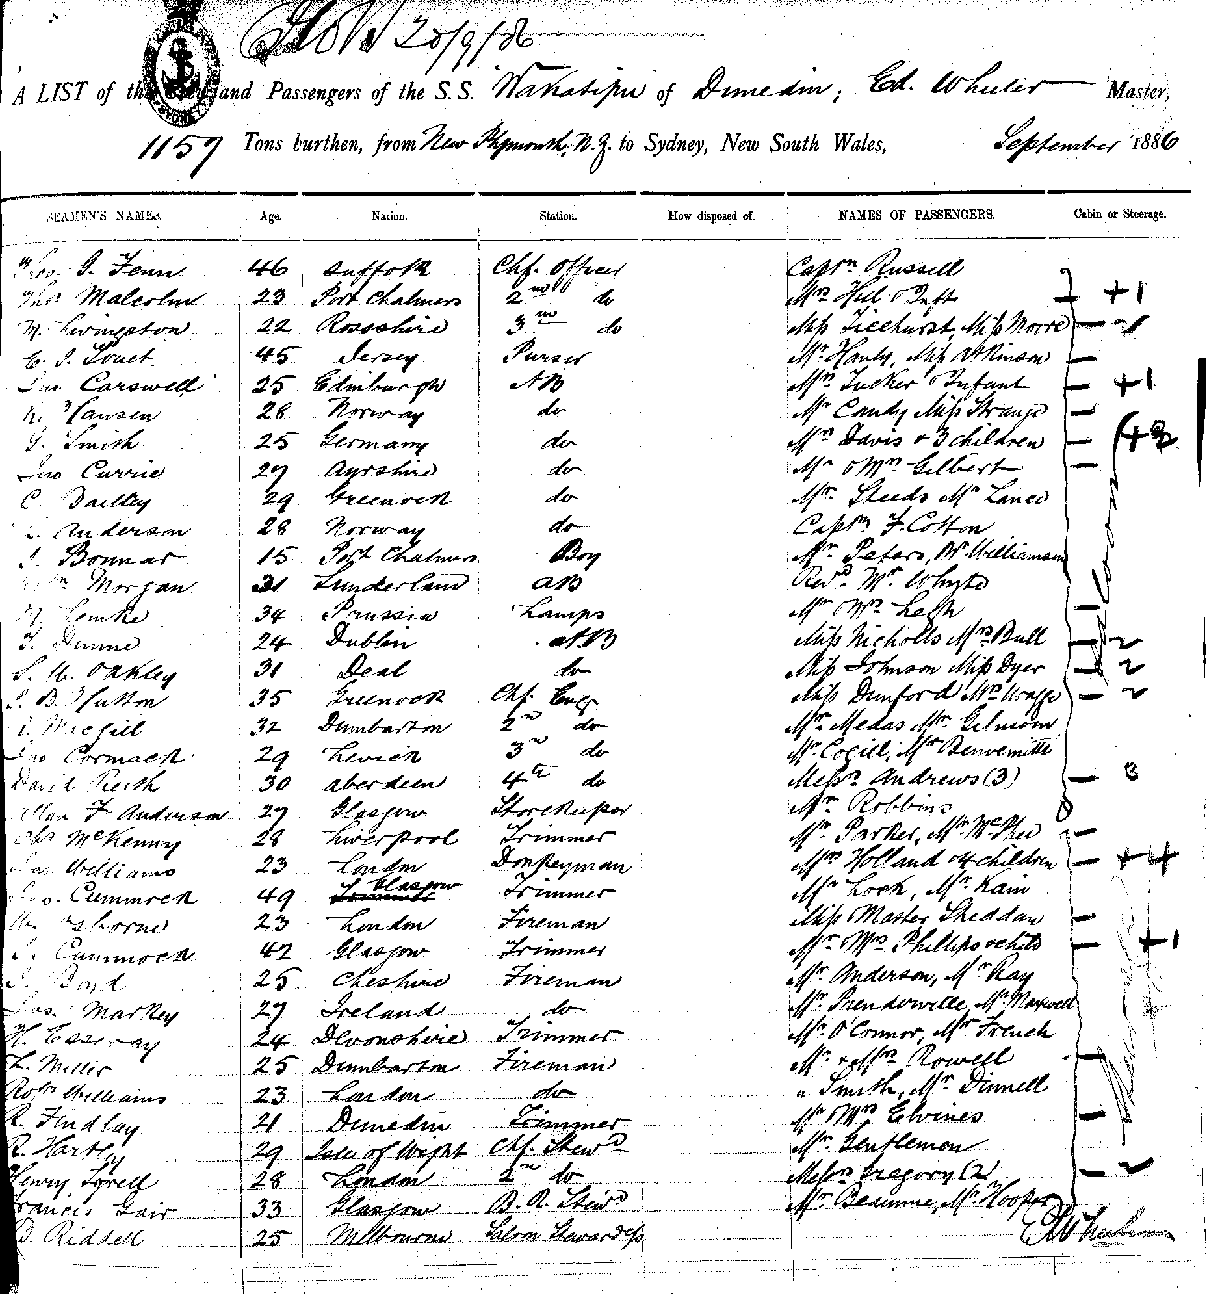 20/9/86
A LIST of the and Passengers of the S.S. Wakatipu of Dunedin, Ed. Wheeler Master,
1157 Tons burthen, from New Plymouth, N.Z. to Sydney, New South Wales, September 1886
SEAMEN'S NAMES. Age. Nation. Station. How disposed of. NAMES OF PASSENGERS. Cabin or Steerage.
J. Fenn 46 Suffolk Chf. Officer Captn Russell
Thos Malcolm 23 Port Chalmers 2nd do Mrs Hill & Inft +1
M. Livingston 22 Rossshire 3rd do Miss Ticehurst, Miss Moore
C. J. 45 Jersey Purser Mr Hanly, Miss Atkinson
Jno Carswell 25 Edinburgh AB Mrs Tucker & Infant +1
N. Hansen 28 Norway do Mr Candy Miss Strange
J. Smith 25 Germany do Mrs Davis & 3 children
Jno Currie 27 Ayrshire do Mr & Mrs Gilbert
C. 29 Greenock do Mr Steeds Mr Lance
Anderson 28 Norway do Captn F. Cotton
J. Bonnar 15 Port Chalmers Boy Mr Peters, Williamson
Wm Morgan 31 Sunderland AB Revd Mr Whyte
Lemke 34 Prussia Lamps Mr & Mrs
T. Dunne 24 Dublin AB Miss Nicholls Mrs Bull 2
S. W. Oakley 31 Deal do Miss Johnson Miss Dyer 2
J. B. Hutton 35 Greenock Chf. Engr Miss Dunford Mrs 2
Macgill 32 Dumbarton 2nd do Mr Medas Mr Gilmour
Jno Cormack 29 3rd do Mr Cogill, Mr
David Keith 30 Aberdeen 4th do Messrs Andrews (3) 3
Allan F Anderson 27 Glasgow Storekeeper Mr Robbins
Chs McKenny 28 Liverpool Trimmer Mr Parker, Mrs McPhee
Jas Williams 23 London Donkeyman Mrs Holland & 4 children +4
Cummock 49 Glasgow Trimmer Mr Look, Mr Kain
Osborne 23 London Fireman Miss Master Sheddan
Cummock 42 Glasgow Trimmer Mr & Mrs Phillips & child +1
J. Boyd 25 Cheshire Fireman Mr Anderson, Mr Kay
Jas. Markey 27 Ireland do Mr Prenderville, Mr Maxwell
H. 24 Devonshire Trimmer Mr O'Connor, Mr French
L. Miller 25 Dumbarton Fireman Mr & Mrs Rowell
Robt Williams 23 London do " Smith, Mr Dinnell
R. Findlay 21 Dunedin Trimmer Mr & Mrs Elvines
R. Hartly 29 Isle of Wight Chf. Stewd Mr Gentlemen
Henry Tyrell 28 London 2nd do Messrs Gregory (2 2
Francis Gair 33 Glasgow B. R. Stewd Mr Mr Hooper
D. Riddell 25 Melbourne Saloon Stewardess
Ed Wheeler